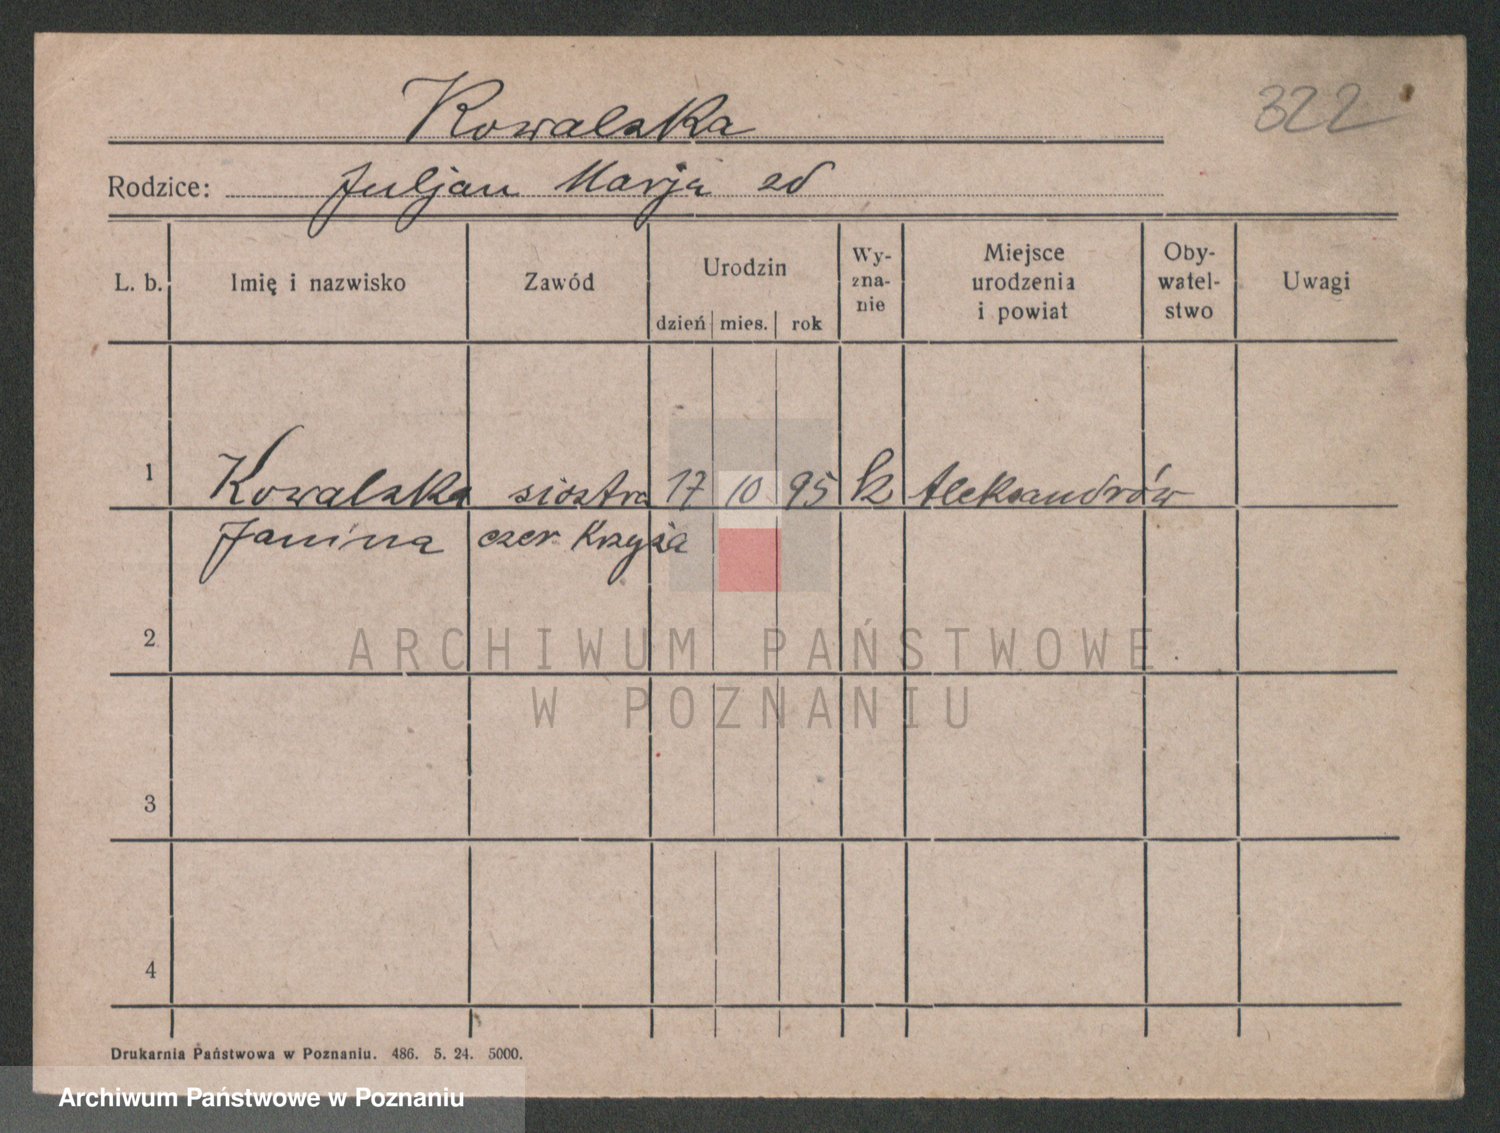 Kowalska
322
Rodzice: Juljan Marja
L. b. Imię i nazwisko Zawód Urodzin dzień mies. rok Wy-zna-nie Miejsce urodzenia i powiat Oby-watel-stwo Uwagi
1 Kowalska siostra 17 10 95 k Aleksandrów
Janina czer Krzyża
2
ARCHIWUM PAŃSTWOWE
W POZNANIU
3
4
Drukarnia Państwowa w Poznaniu. 486. 5. 24. 5000.
Archiwum Państwowe w Poznaniu